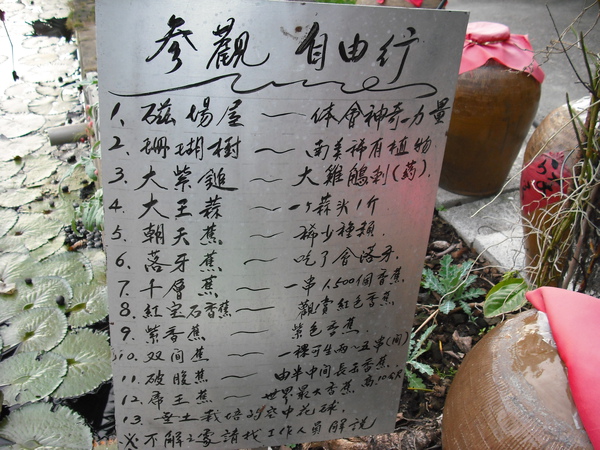 參觀 自由行
1. 磁場屋 ～ 体會神奇力量
2. 珊瑚樹 ～ 南美稀有植物
3. 大紫鎚 ～ 大雞鵤剌(葯).
4. 大王蒜 ～ 一ケ蒜头1斤
5. 朝天蕉 ～ 稀少種類.
6. 落牙蕉 ～ 吃了會落牙.
7. 千層蕉 ～ 一串人500個香蕉
8. 紅宝石香蕉 ～ 觀賞紅色香蕉
9. 紫香蕉 ～ 紫色香蕉.
10. 双间蕉 ～ 一裸可生兩～五串(间)
11. 破腹蕉 ～ 由半中间長出香蕉.
12. 帝王蕉 ～ 世界最大香蕉 高10公尺
13. 無土栽培的空中花球.
※不解之處請找工作人員解説